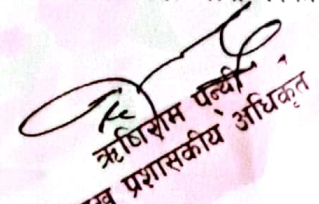 ऋषिराम पन्थी
प्रशासकीय अधिकृत